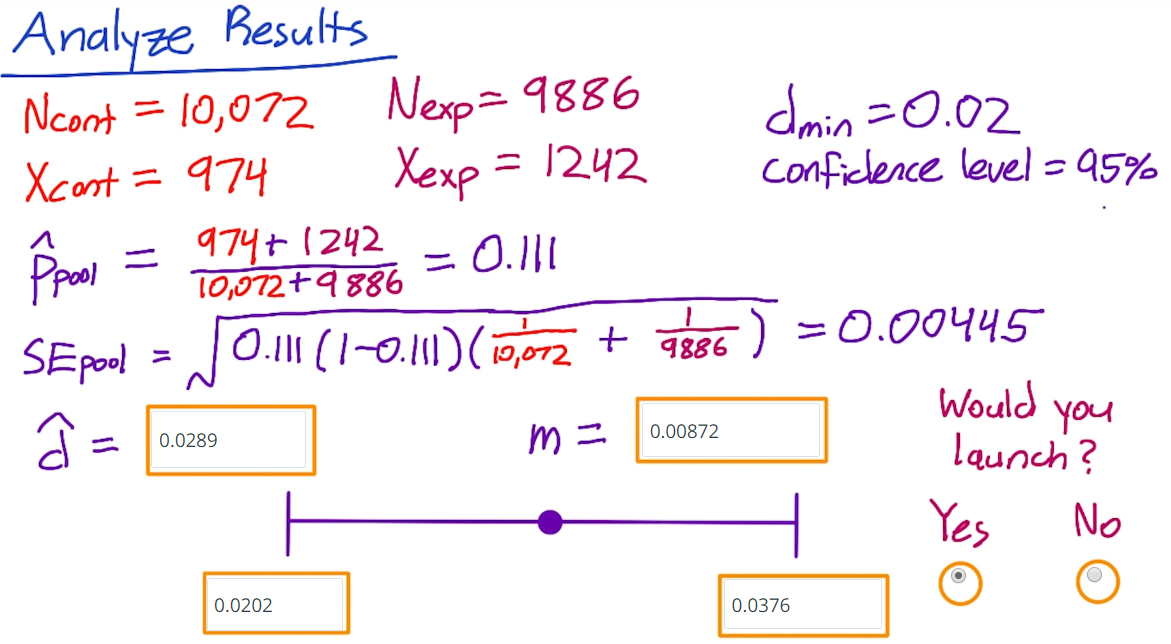 Analyze Results
Ncont = 10,072 Nexp = 9886 dmin = 0.02
Xcont = 974 Xexp = 1242 confidence level = 95%
p̂pool = (974 + 1242) / (10,072 + 9886) = 0.111
SEpool = √(0.111 (1-0.111)(1/10,072 + 1/9886)) = 0.00445
d̂ = 0.0289 m = 0.00872
Would you
launch?
Yes No
0.0202 0.0376